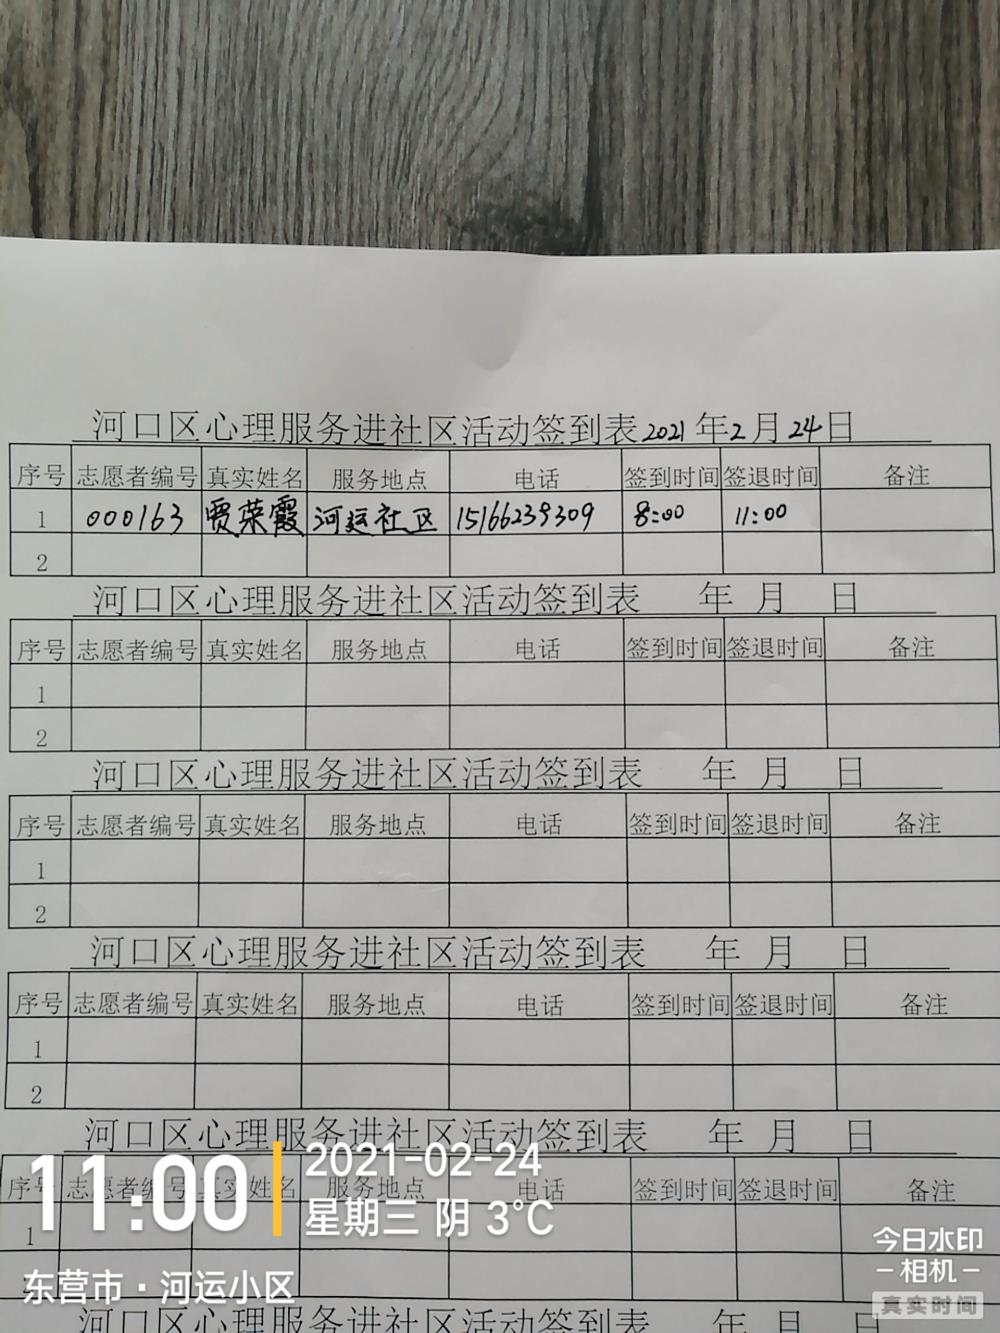 河口区心理服务进社区活动签到表2021年2月24日
序号 志愿者编号 真实姓名 服务地点 电话 签到时间 签退时间 备注
1 000163 贾荣霞 河运社区 15166239309 8:00 11:00
2
河口区心理服务进社区活动签到表 年 月 日
序号 志愿者编号 真实姓名 服务地点 电话 签到时间 签退时间 备注
1
2
河口区心理服务进社区活动签到表 年 月 日
序号 志愿者编号 真实姓名 服务地点 电话 签到时间 签退时间 备注
1
2
河口区心理服务进社区活动签到表 年 月 日
序号 志愿者编号 真实姓名 服务地点 电话 签到时间 签退时间 备注
1
2
河口区心理服务进社区活动签到表 年 月 日
序号 志愿者编号 真实姓名 服务地点 电话 签到时间 签退时间 备注
1
河口区心理服务进社区活动签到表 年 月 日
11:00
2021-02-24
星期三 阴 3°C
东营市·河运小区
今日水印
-相机-
真实时间